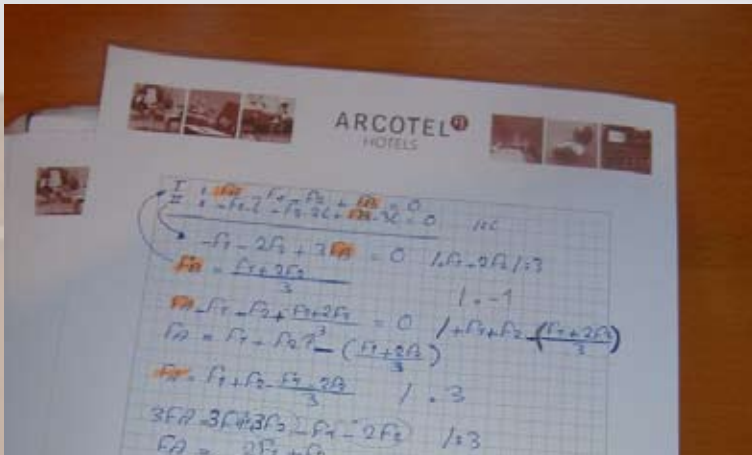 ARCOTEL
HOTELS
I : FA - F1 - F2 + FB = 0
II : -F1·l - F2·2l + FB·3l = 0 /:l
-F1 - 2F2 + 3FB = 0
FB = F1+2F2 / 3
/·-1
FA - F1 - F2 + F1+2F2 / 3 = 0 /+F1+F2 - (F1+2F2 / 3)
FA = F1 + F2 - (F1+2F2 / 3)
FA = F1+F2 - F1-2F2 / 3 /·3
3FA = 3F1+3F2 - F1 - 2F2 /:3
FA = 2F1+F2